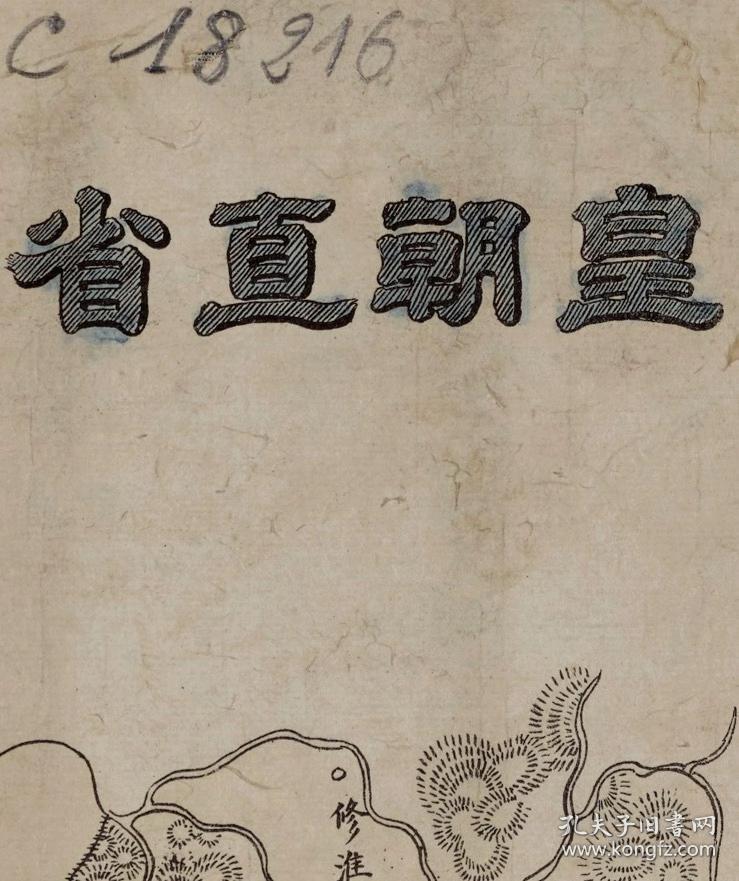 C 18216
皇朝直省
修淮
孔夫子旧書网
www.kongfz.com